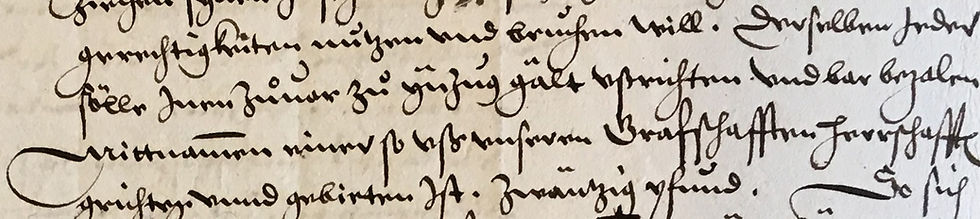 gerechtigkeiten nützen vnd bruchen will. Derselben Jeder
sölle Jnen zůuor zů ynzug gält vßrichten vnd bar bezalen
Mittnamen einer so vß vnseren Graffschafften herrschafft
grichten vnnd gebieten Ist. Zwäntzig pfund. So sich